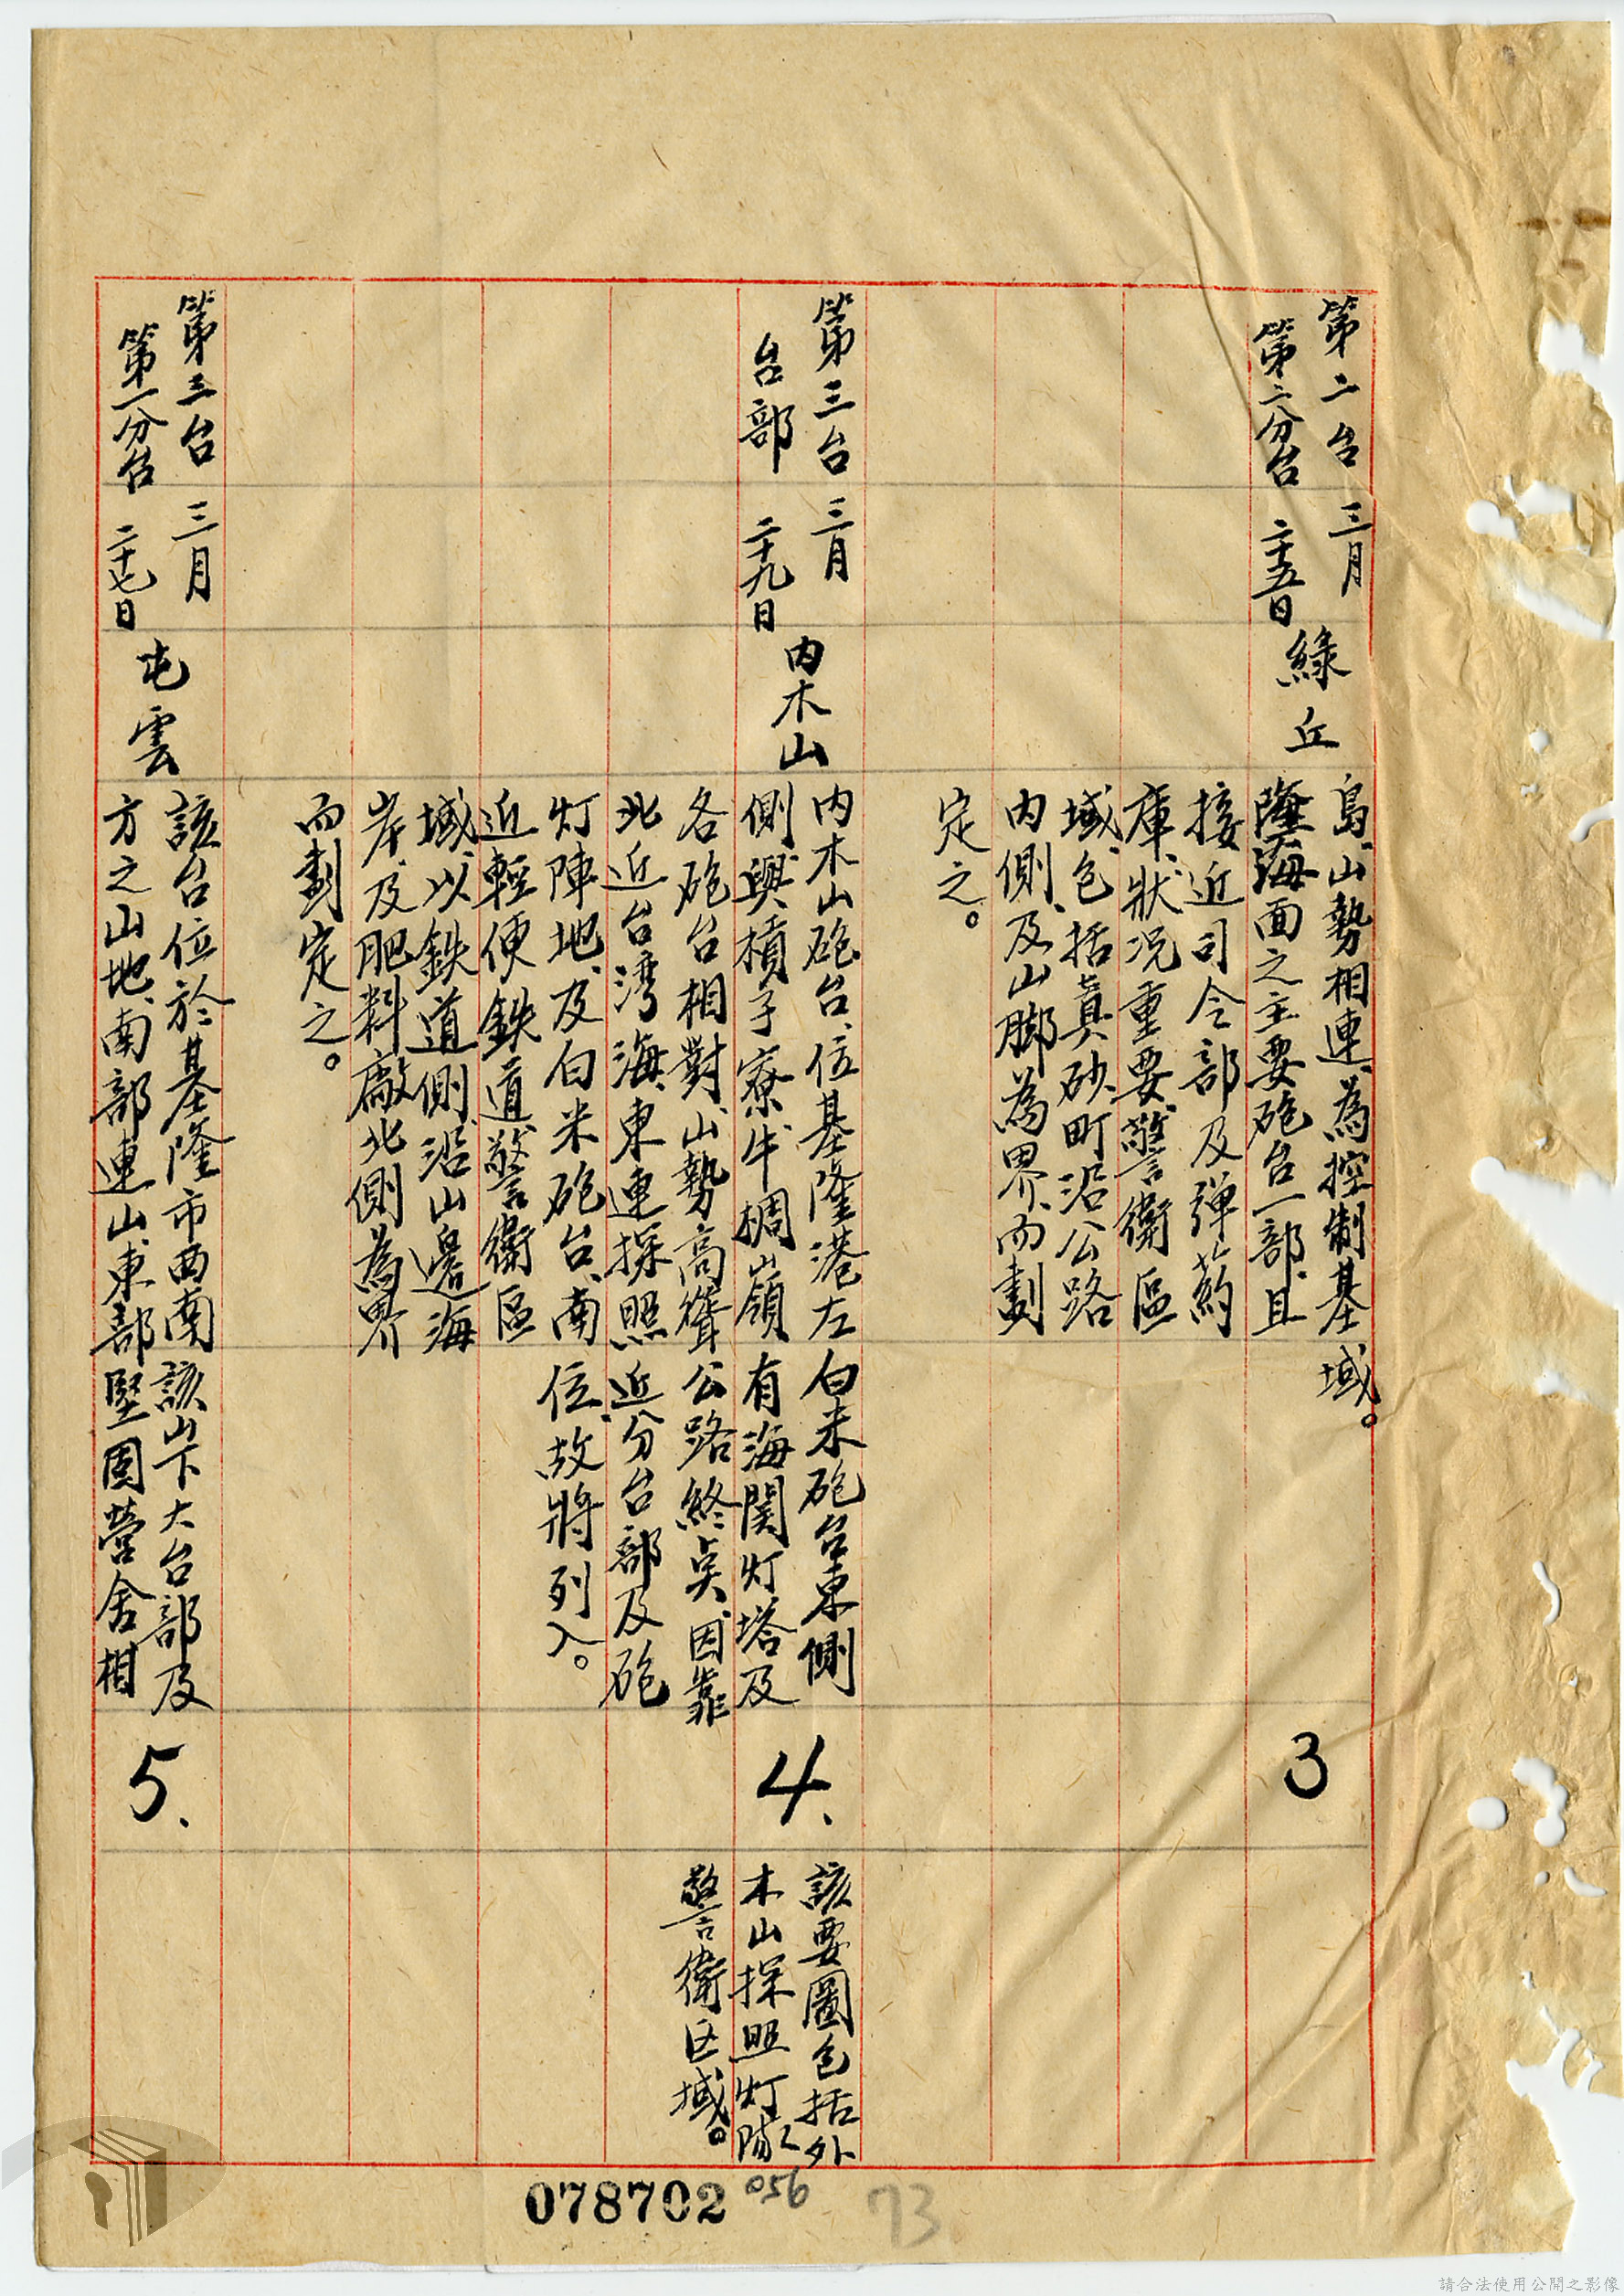 第二台
第二分台
三月
二十五日
綠丘
島、山勢相連、為控制基
隆海面之主要砲台一部、且
接近司令部及彈葯
庫、狀況重要、警衛區
域、包括真砂町沿公路
內側、及山脚為界、而劃
定之。
域。
3
第三台
台部
三月
二十九日
內木山
內木山砲台、位基隆港左
側、與槓子寮、牛稠嶺
各砲台相對、山勢高聳
北近台湾海、東連探照
灯陣地、及白米砲台、南
近輕便鉄道、警衛區
域、以鉄道側、沿山邊海
岸、及肥料廠北側為界
而劃定之。
白米砲台東側
有海関灯塔及
公路終点、因靠
近分台部及砲
位、故將列入。
4、
該要圖包括外
木山探照灯隊之
警衛区域。
第三台
第一分台
三月
二十七日
屯雲
該台位於基隆市西南
方之山地、南部連山、東部
該山下大台部及
堅固營舍相
5、
078702
056
73
請合法使用公開之影像